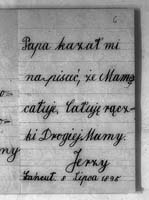 6
Papa kazał mi
napisać, że Mamę
całuje, Całuję rącz-
ki Drogiej Mamy.
Jerzy
Łańcut. 8 Lipca 1895